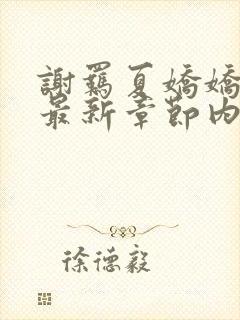 謝羈夏嬌嬌
最新章節內
徐德毅